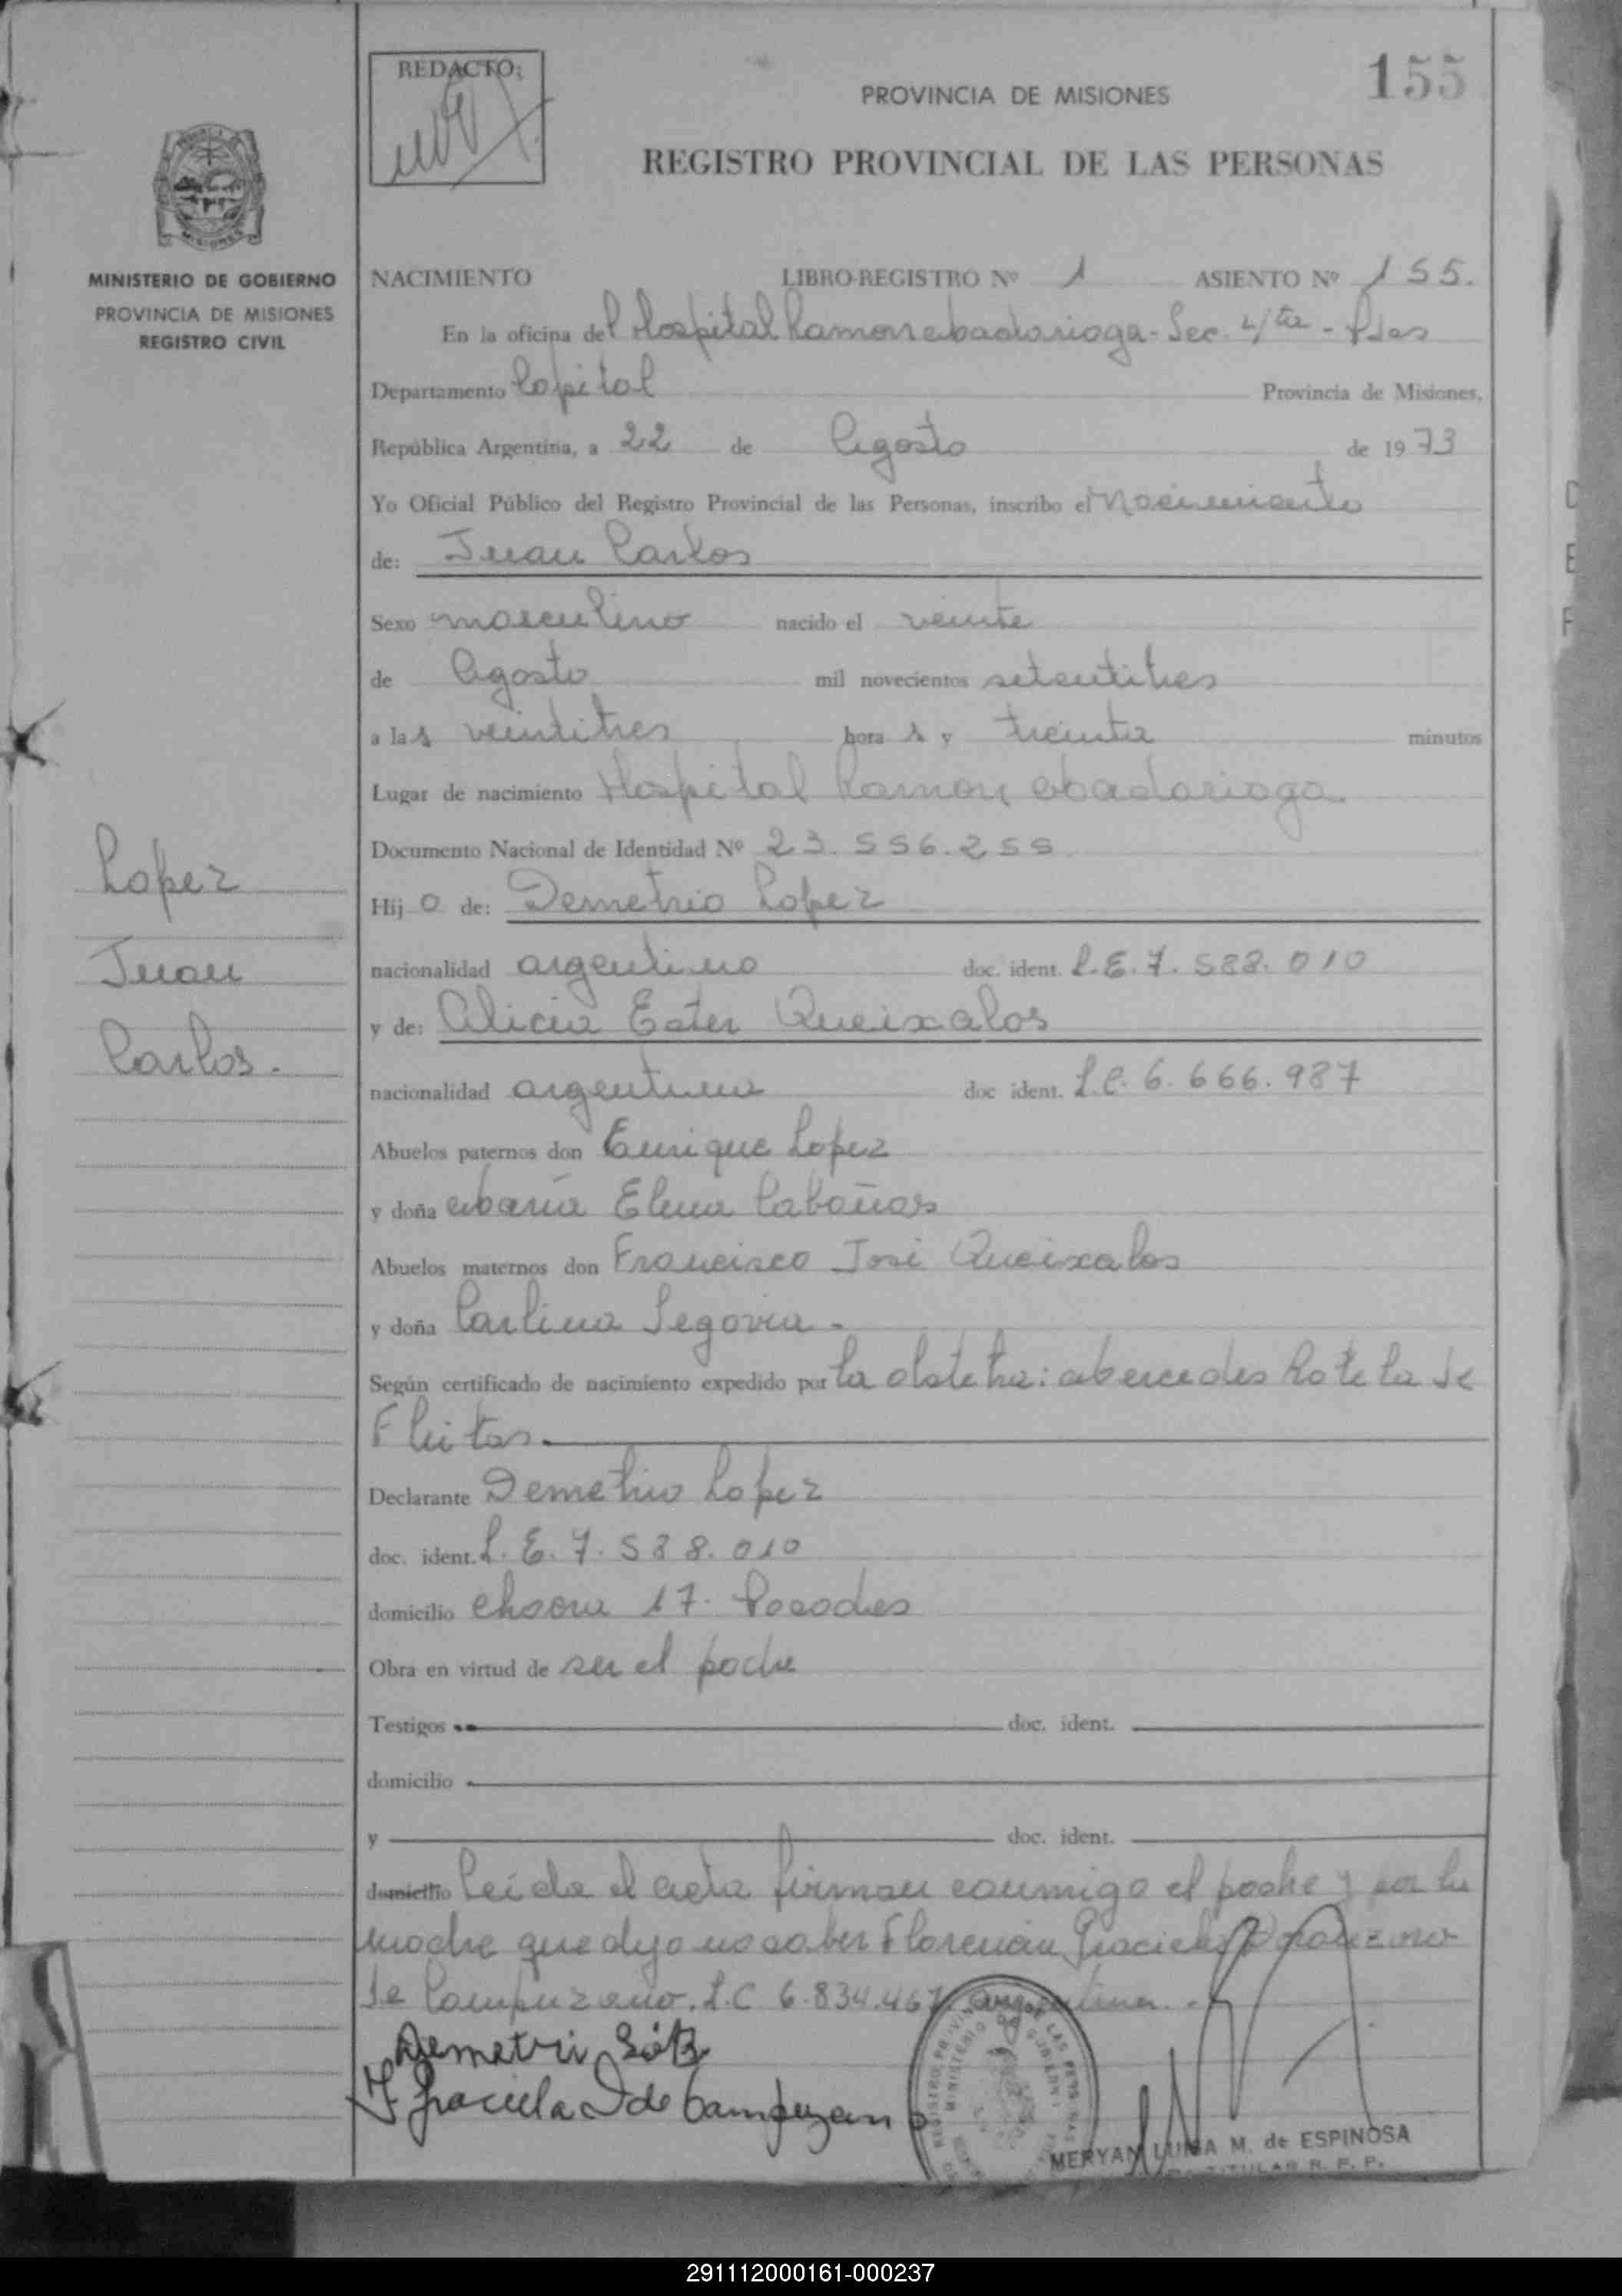 REDACTO:
155
PROVINCIA DE MISIONES
REGISTRO PROVINCIAL DE LAS PERSONAS
MINISTERIO DE GOBIERNO
PROVINCIA DE MISIONES
REGISTRO CIVIL
NACIMIENTO LIBRO-REGISTRO Nº 1 ASIENTO Nº 155.
En la oficina del Hospital Ramon Madariaga - Sec. 4/ta - Pdas
Departamento Capital Provincia de Misiones,
República Argentina, a 22 de Agosto de 1973
Yo Oficial Público del Registro Provincial de las Personas, inscribo el Nacimiento
de: Juan Carlos
Sexo masculino nacido el veinte
de Agosto mil novecientos setentitres
a las veintitres hora s y treinta minutos
Lugar de nacimiento Hospital Ramon Madariaga
Documento Nacional de Identidad Nº 23.556.255
Hij o de: Demetrio Lopez
nacionalidad argentino doc. ident. L.E. 7.588.010
y de: Alicia Ester Queixalos
nacionalidad argentina doc ident. L.C. 6.666.987
Abuelos paternos don Enrique Lopez
y doña María Elena Cabañas
Abuelos maternos don Francisco José Queixalos
y doña Carlina Segovia.
Según certificado de nacimiento expedido por la obstetra: Mercedes Rotela de
Fleitas.
Declarante Demetrio Lopez
doc. ident. L.E. 7.588.010
domicilio chacra 17. Posadas
Obra en virtud de ser el padre
Testigos doc. ident.
domicilio
y doc. ident.
domicilio Leida el acta firman conmigo el padre y por la
madre que dijo no saber Graciela
de Campuzano. L.C 6.834.467 argentina.
Lopez
Juan
Carlos.
Graciela de Campuzano
MERYAN LUISA M. de ESPINOSA
TITULAR R. P. P.
291112000161-000237